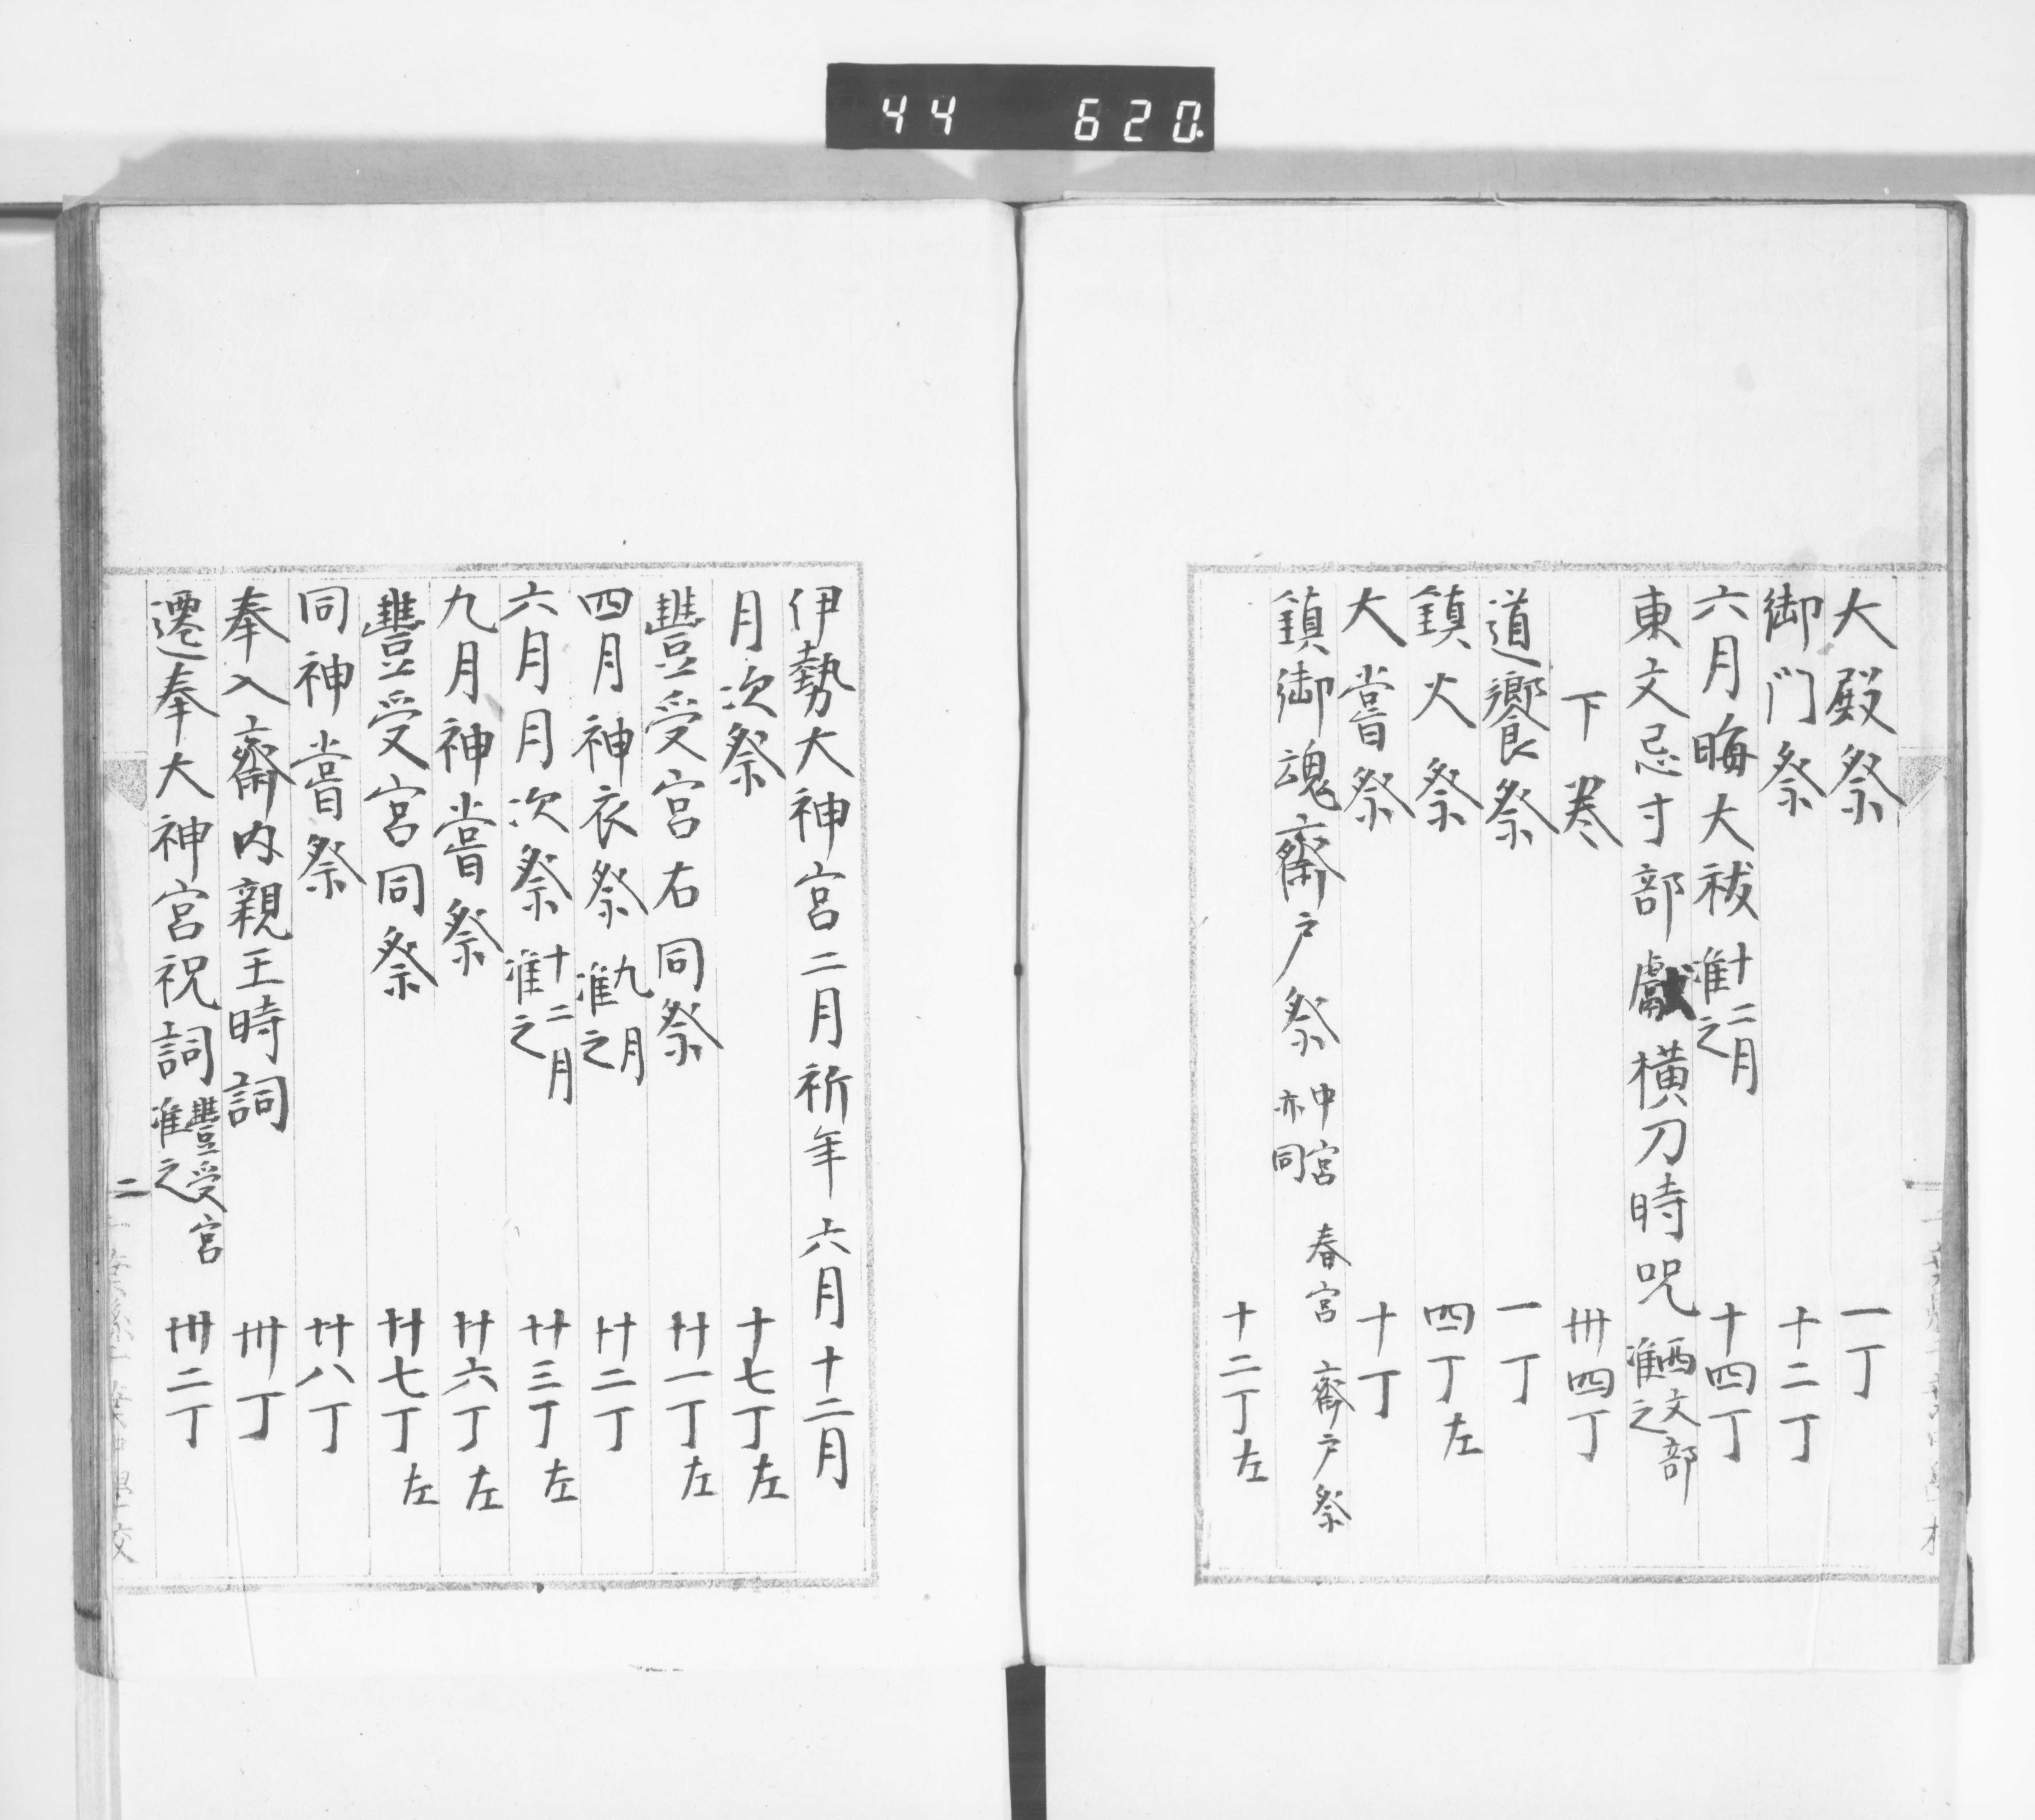 44 620
大殿祭 一丁
御門祭 十二丁
六月晦大祓 十二月准之 十四丁
東文忌寸部獻横刀時呪 西文部准之
下巻 卅四丁
道饗祭 一丁
鎮火祭 四丁左
大嘗祭 十丁
鎮御魂齋戸祭 中宮春宮齋戸祭亦同
十二丁左
伊勢大神宮二月祈年六月十二月
月次祭 十七丁左
豐受宮右同祭 廿一丁左
四月神衣祭 九月准之 廿二丁
六月月次祭 十二月准之 廿三丁左
九月神嘗祭 廿六丁左
豐受宮同祭 廿七丁左
同神嘗祭 廿八丁
奉入齋内親王時詞 卅丁
遷奉大神宮祝詞 豐受宮准之 卅二丁
二